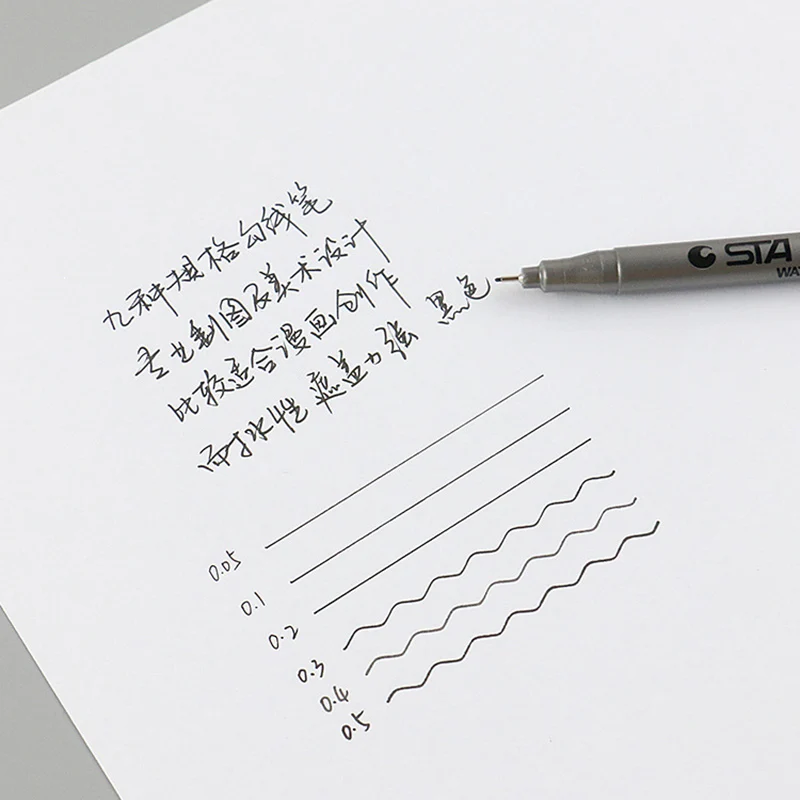 九种规格勾线笔
专业制图及美术设计
比较适合漫画创作
耐水性 遮盖力强 黑色
0.05
0.1
0.2
0.3
0.4
0.5
STA
WAT